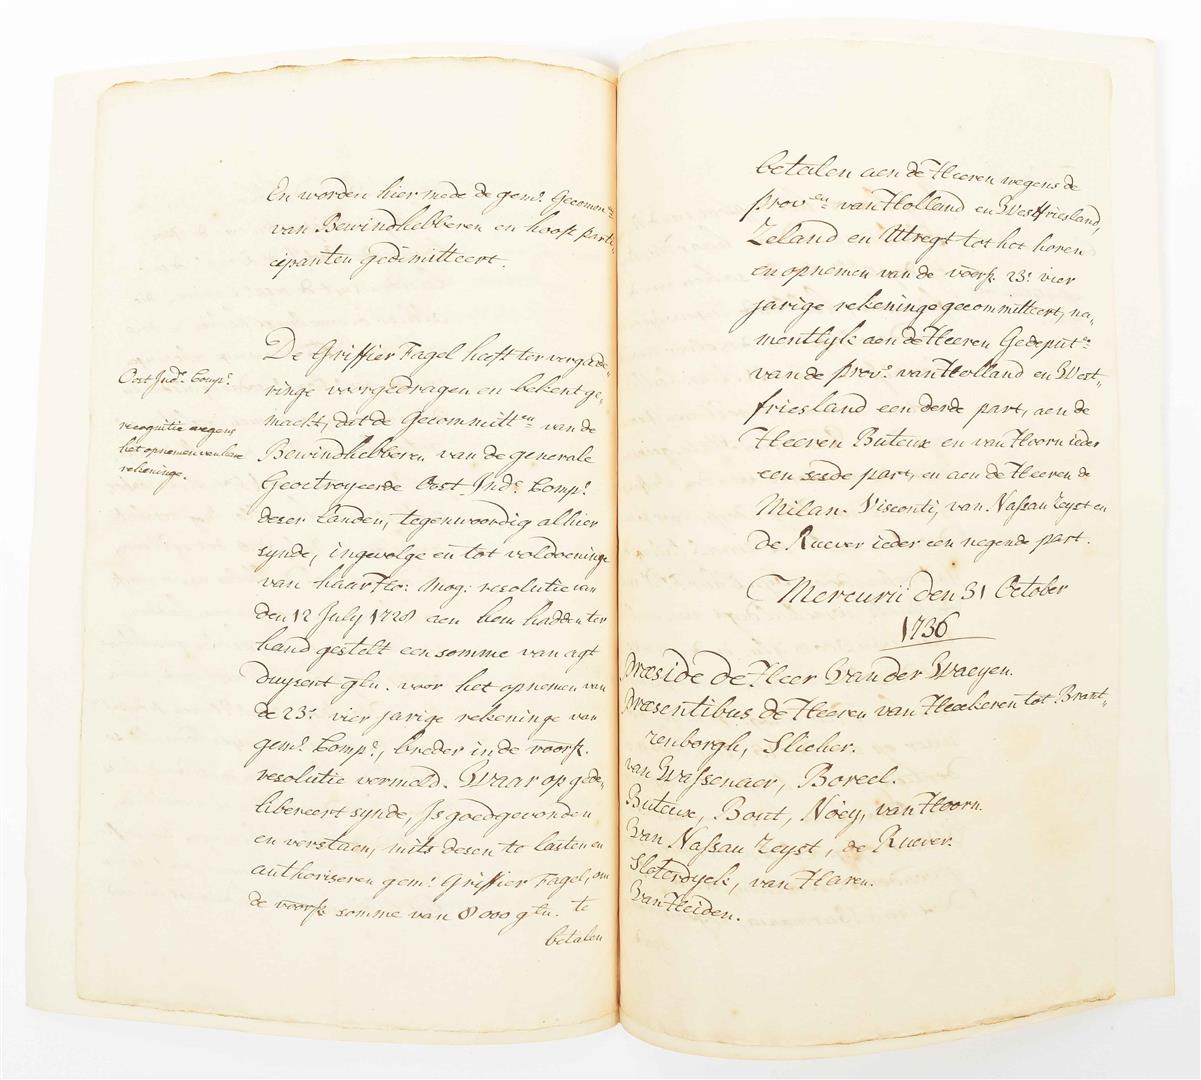 En worden hier mede de gem: Gecomm:en
van Bewindhebberen en hooft parti-
cipanten gedimitteert.
De Griffier Fagel heeft ter vergade-
Oost Ind: Comp:
ringe voorgedragen en bekent ge-
maekt, dat de Gecommitt:en van de
recognitie wegens
het opnemen van hare
rekeninge.
Bewindhebberen van de generale
Geoctroyeerde Oost Ind: Comp:
deser Landen, tegenwoordig alhier
synde, ingevolge en tot voldoeninge
van haar Ho: Mog: resolutie van
den 12 July 1728 aen hem hadden ter
hand gestelt een somme van agt
duysent gln. voor het opnemen van
de 23: vier jarige rekeninge van
gem: Comp:, breder in de voorsz.
resolutie vermeld. Waar op gede-
libereert synde, Is goedgevonden
en verstaen, mits desen te lasten en
authoriseren gem: Griffier Fagel, om
de voorsz somme van 8000 gln. te
betalen
betalen aen de Heeren wegens de
prov:en van Holland en Westfriesland,
Zeland en Uttregt tot het horen
en opnemen van de voorsz. 23: vier
jarige rekeninge gecommitteert, na-
mentlyk aen de Heeren Gedeput:en
van de prov: van Holland en West-
friesland een derde part, aen de
Heeren Buteux en van Hoorn ieder
een sesde part, en aen de Heeren de
Milan-Visconti, van Nassau Zeyst en
de Ruever ieder een negende part.
Mercurii den 31 October
1736
Præside de Heer Van der Waeyen.
Præsentibus de Heeren van Heeckeren tot Brant-
zenborgh, Slicher.
van Wassenaer, Boreel.
Buteux, Bout, Nöey, van Hoorn.
Van Nassau Zeyst, de Ruever.
Sloterdyck, van Haren.
Van Heiden.